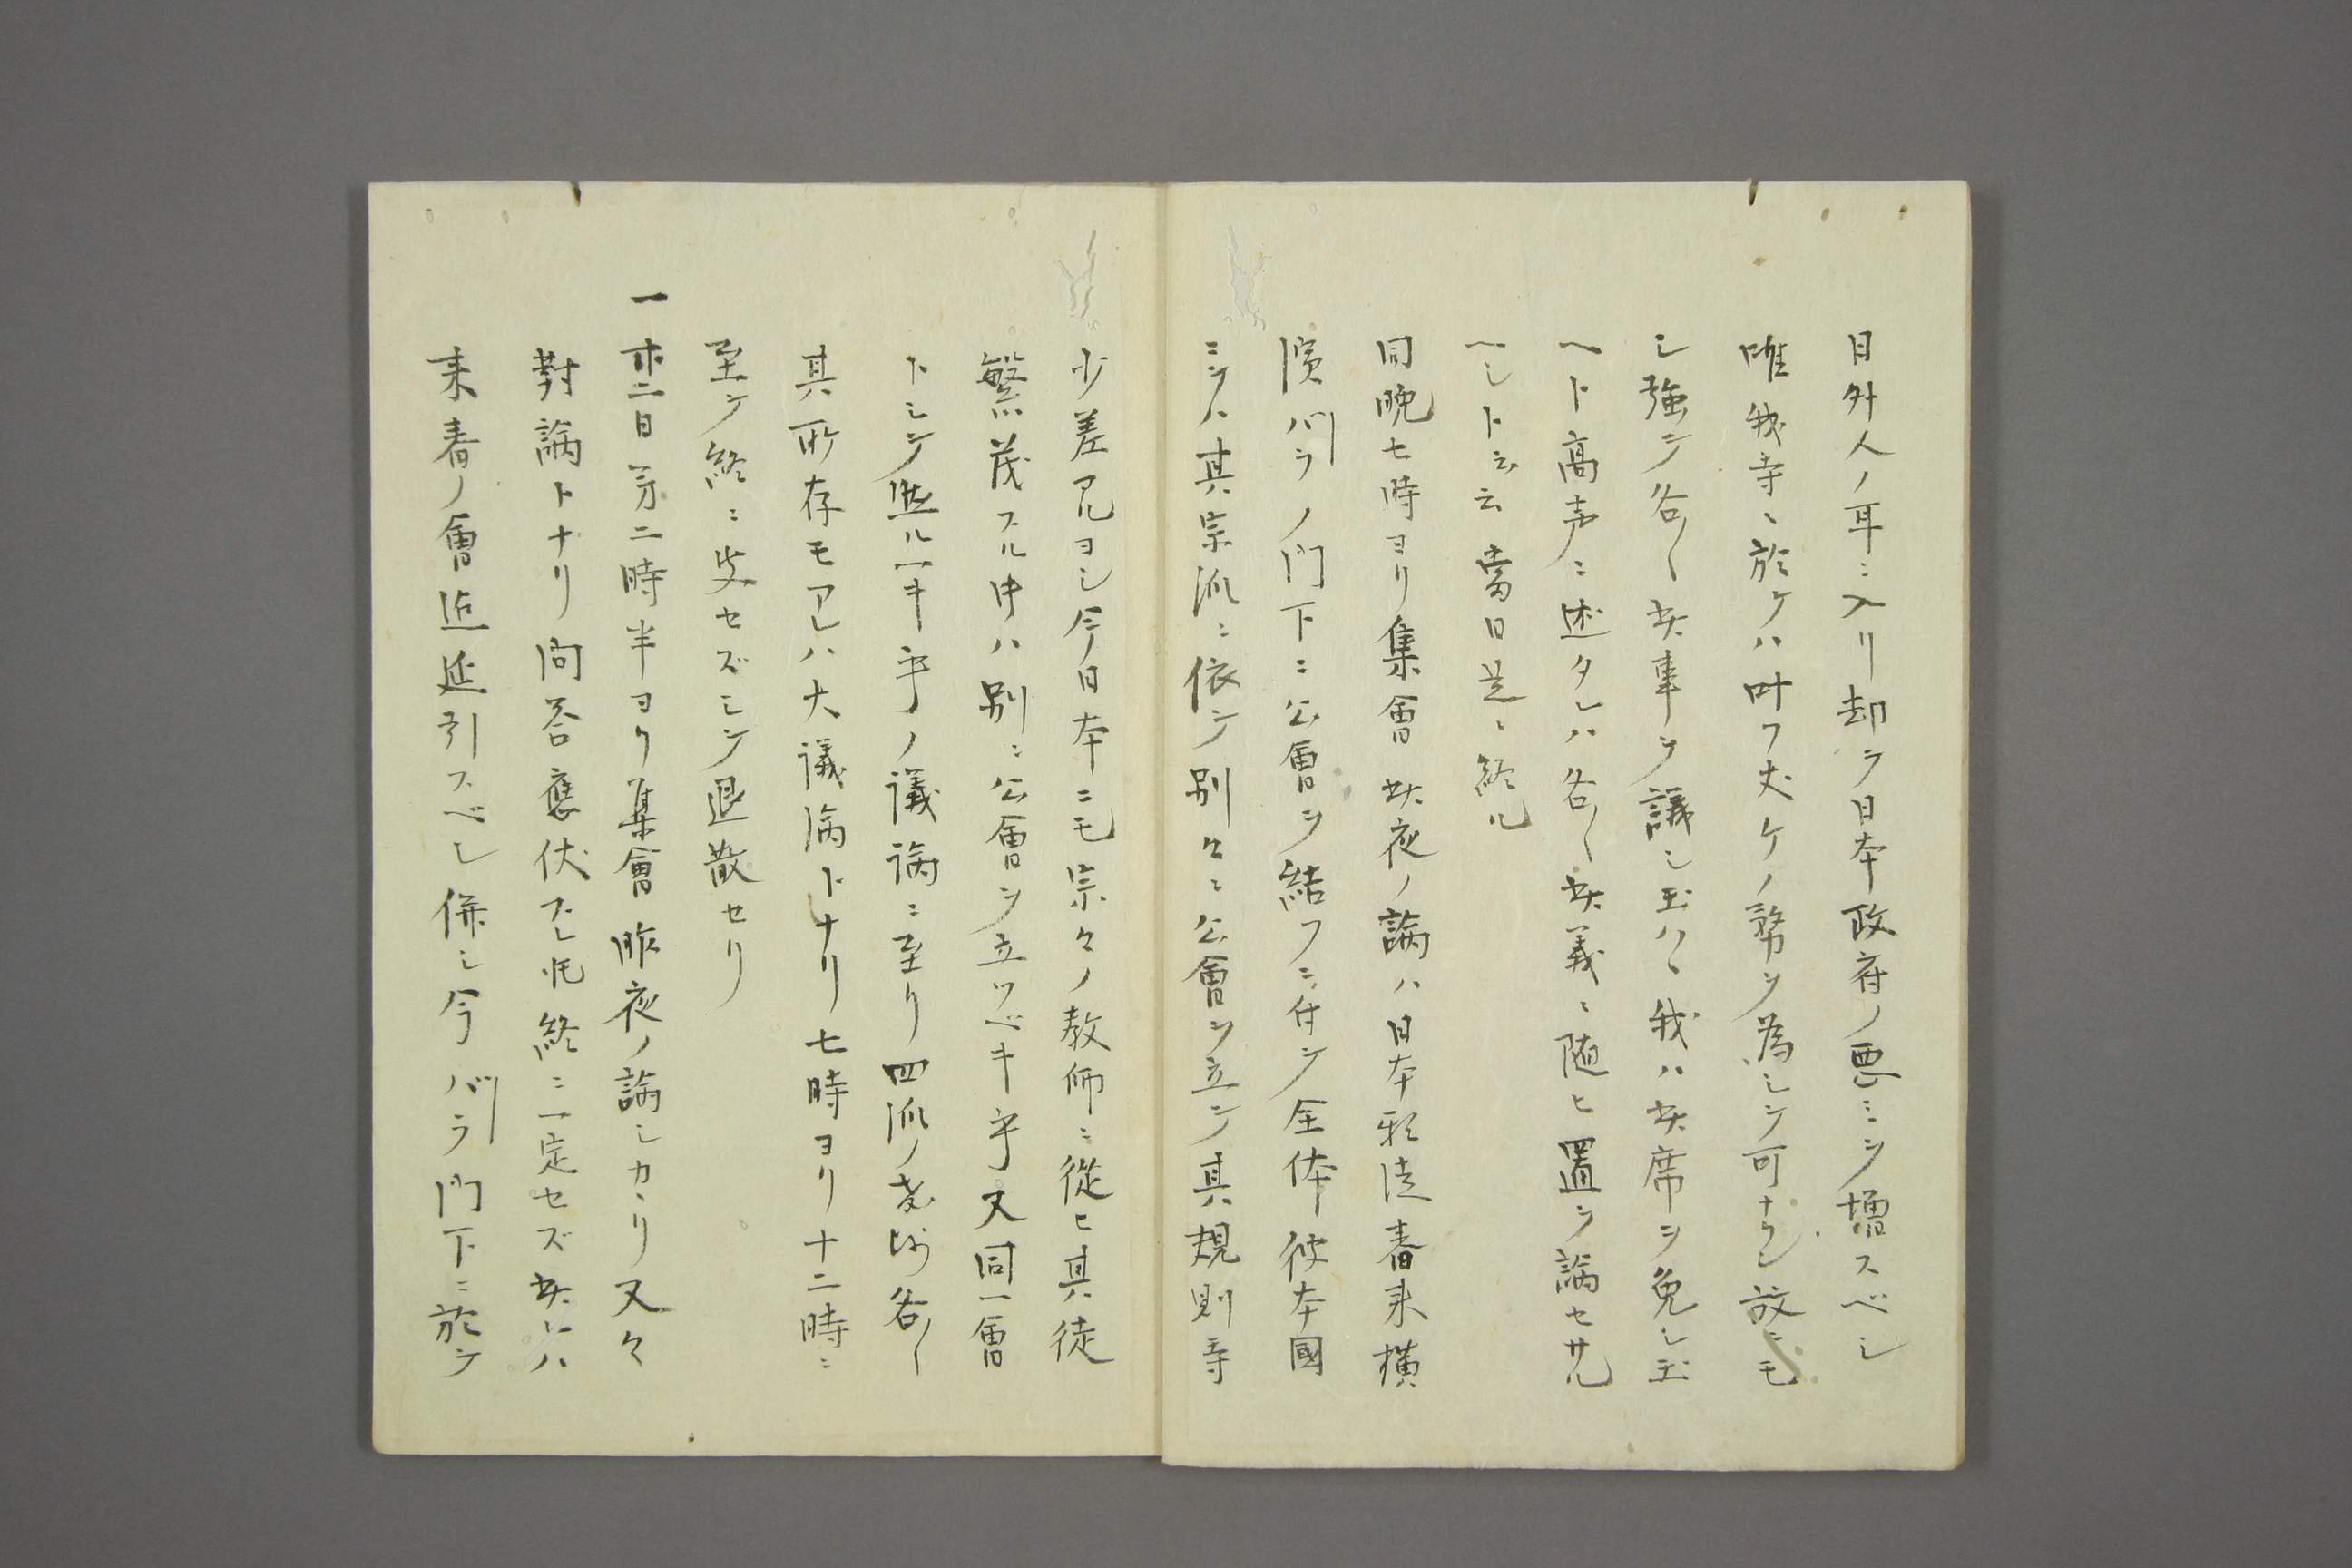 目外人ノ耳ニ入リ却テ日本政府ノ悪ミヲ増スベシ
唯我寺ニ於ケハ叶フ丈ケノ務ヲ為シテ可ナラン故ニモ
シ強テ各〱此事ヲ議シ玉ハヽ我ハ此席ヲ免シ玉
ヘト高声ニ述タレハ各〱此義ニ随ヒ置テ論セサル
ヘシト云云當日是ニ終ル
同晩七時ヨリ集會此夜ノ論ハ日本邪徒春来横
濱バラノ門下ニ公會ヲ結フニ付テ全体彼本國
ニテハ其宗派ニ依テ別々ニ公會ヲ立テ其規則寺
少差アルヨシ今日本ニモ宗々ノ教師ニ從ヒ其徒
繁茂スル中ハ別ニ公會ヲ立ツベキ乎又同一會
トシテ然ルヘキ乎ノ議論ニ至リ四派ノ教師各〱
其所存モアレハ大議論トナリ七時ヨリ十二時ニ
至テ終ニ決セズシテ退散セリ
一廿二日第二時半ヨリ集會昨夜ノ論シカヽリ又々
對論トナリ問答應伏スレ𪜈終ニ一定セズ此レハ
来春ノ會迄延引スベシ併シ今バラ門下ニ於テ